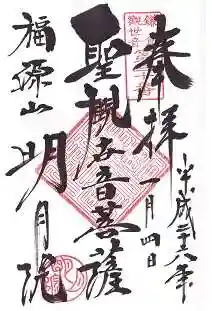 奉拝
平成二十八年
一月四日
聖観世音菩薩
福源山
明月院